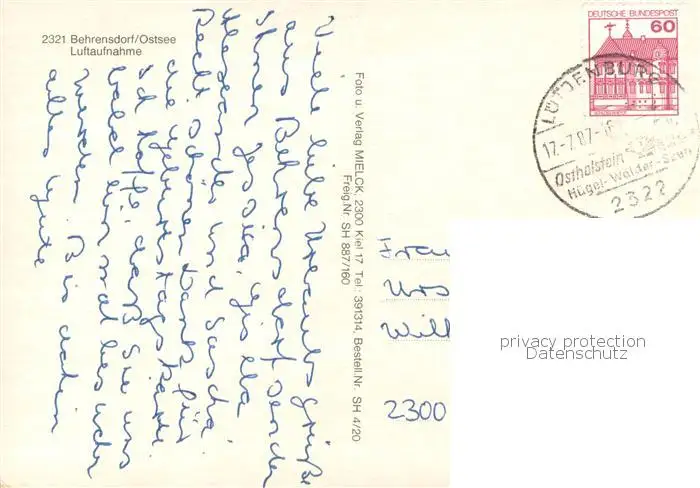 2321 Behrensdorf/Ostsee
Luftaufnahme
Viele liebe Urlaubsgrüße
aus Behrensdorf senden
Ihnen Jessica, Gisela
Alexander und Sascha.
Recht schönen Dank für
die Geburtstagskarte
ich hoffe, daß Sie uns
bald einmal besuchen
werden. Bis dahin
alles Gute
Foto u. Verlag MIELCK, 2300 Kiel 17 Tel.: 391314, Bestell.Nr. SH 4/20
Freig.Nr. SH 887/160
DEUTSCHE BUNDESPOST
60
LÜTJENBURG
17.-7.87.-16
Ostholstein
Hügel-Wälder-Seen
2322
Frau
Urs
Will
2300
privacy protection
Datenschutz